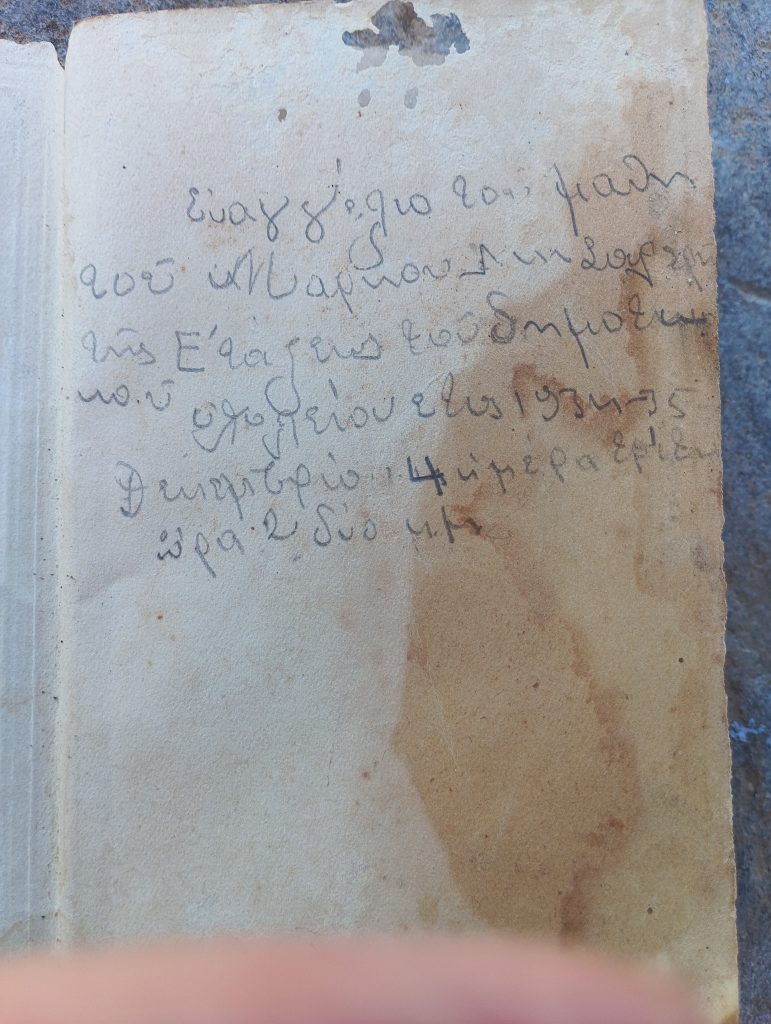 Ευαγγέλιο του μαθη
τοῦ Μάρκου
τῆς Ε' τάξεως τοῦ δημοτι
κοῦ σχολείου ετος 1934-35
Δεκεμβρίο 4 ημέρα τρίτη
ώρα 2 δύο μμ